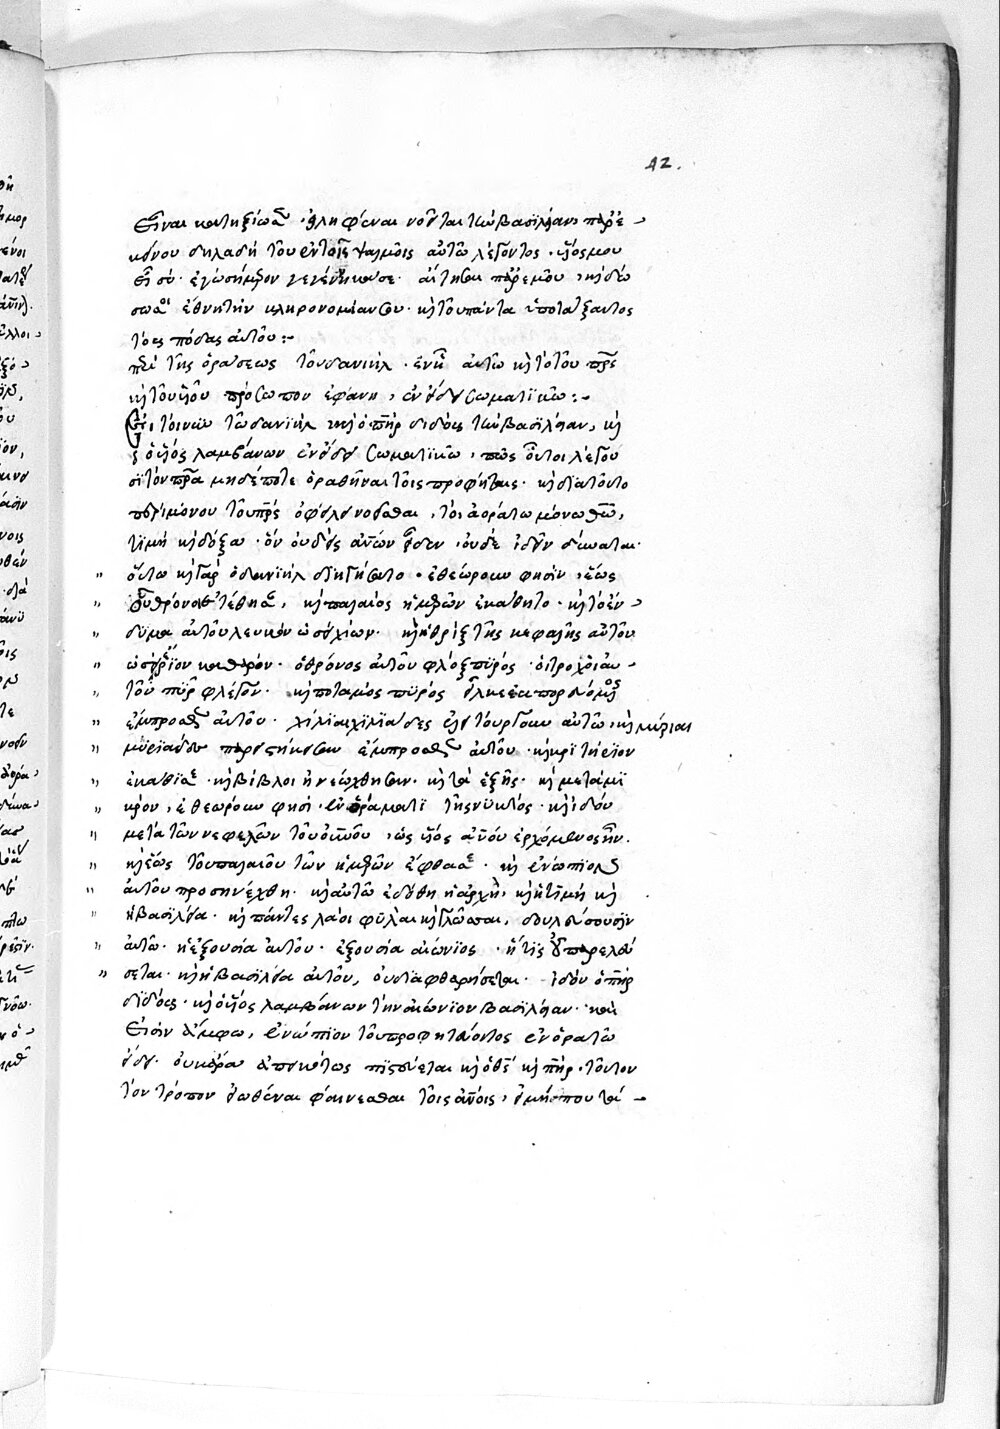 42.
εἶναι κατηξίωσεν· εἰληφέναι νοεῖται τὴν βασιλείαν, παρ' ἐ
κείνου δηλαδὴ τοῦ ἐν τοῖς ψαλμοῖς αὐτῷ λέγοντος· υἱός μου
εἶ σύ· ἐγὼ σήμερον γεγέννηκά σε· αἴτησαι παρ' ἐμοῦ, καὶ δώ
σω σοι ἔθνη τὴν κληρονομίαν σου· καὶ τοῦ πάντα ὑποτάξαντος
τοὺς πόδας αὐτοῦ :-
περὶ τῆς ὁράσεως τοῦ δανιὴλ· ἐν ᾗ αὐτῷ καὶ τὸ τοῦ πρς
καὶ τοῦ υἱοῦ πρόσωπον ἐφάνη, ἐν εἴδει σωματικῷ :-
Εἰ τοίνυν τῷ δανιὴλ καὶ ὁ πὴρ διδοὺς τὴν βασιλείαν, καὶ
ὁ υἱὸς λαμβάνων ἐν εἴδει σωματικῷ, πῶς οὗτοι λέγου
σι τὸν πρα μηδέποτε ὁραθῆναι τοῖς προφήταις· καὶ διὰ τοῦτο
περὶ μόνου τοῦ πρς ὀφείλειν δέχεσθαι, τὸ, ἀοράτῳ μόνῳ θῶ,
τιμὴ καὶ δόξα· ὃν οὐδεὶς ἀνων εἶδεν, οὐδὲ ἰδεῖν δύναται·
" οὕτω καὶ γὰρ ὁ δανιὴλ διηγήσατο· ἐθεώρουν φησὶν, ἕως
" οὗ θρόνοι ἐτέθησαν, καὶ παλαιὸς ἡμερῶν ἐκάθητο· καὶ τὸ ἔν
" δυμα αὐτοῦ λευκὸν ὡσεὶ χιών· καὶ ἡ θρὶξ τῆς κεφαλῆς αὐτοῦ
" ὡσεὶ ἔριον καθαρόν· ὁ θρόνος αὐτοῦ φλὸξ πυρός· οἱ τροχοὶ αὐ
" τοῦ πῦρ φλέγον· καὶ ποταμὸς πυρὸς εἷλκεν ἐκπορευόμενος
" ἔμπροσθεν αὐτοῦ· χίλιαι χιλιάδες ἐλειτούργουν αὐτῷ, καὶ μύριαι
" μυριάδες παρειστήκεισαν ἔμπροσθεν αὐτοῦ· καὶ κριτήριον
" ἐκάθισε· καὶ βίβλοι ἠνεώχθησαν· καὶ τὰ ἑξῆς· καὶ μετὰ μι
" κρὸν, ἐθεώρουν φησὶ· ἐν ὁράματι τῆς νυκτός· καὶ ἰδοὺ
" μετὰ τῶν νεφελῶν τοῦ οὐνοῦ, ὡς υἱὸς ἀνού ἐρχόμενος ἦν.
" καὶ ἕως τοῦ παλαιοῦ τῶν ἡμερῶν ἔφθασε· καὶ ἐνώπιον
" αὐτοῦ προσηνέχθη· καὶ αὐτῷ ἐδόθη ἡ ἀρχὴ, καὶ ἡ τιμὴ καὶ
" ἡ βασιλεία· καὶ πάντες λαοὶ φυλαὶ καὶ γλῶσσαι, δουλεύσουσιν
" αὐτῷ· ἡ ἐξουσία αὐτοῦ· ἐξουσία αἰώνιος· ἥτις οὐ παρελεύ
" σεται· καὶ ἡ βασιλεία αὐτοῦ, οὐ διαφθαρήσεται· ἰδοὺ ὁ πὴρ
διδούς· καὶ ὁ υἱὸς λαμβάνων τὴν αἰώνιον βασιλείαν· καὶ
εἰσὶν ἄμφω, ἐνώπιον τοῦ προφητεύοντος ἐν ὁρατῷ
εἴδει· οὐκ ἄρα ἀπεικότως πιστεύεται καὶ ὁ θς καὶ πὴρ· τοῦτον
τὸν τρόπον εἰωθέναι φαίνεσθαι τοῖς ἀνοις, εἰ μή που τά